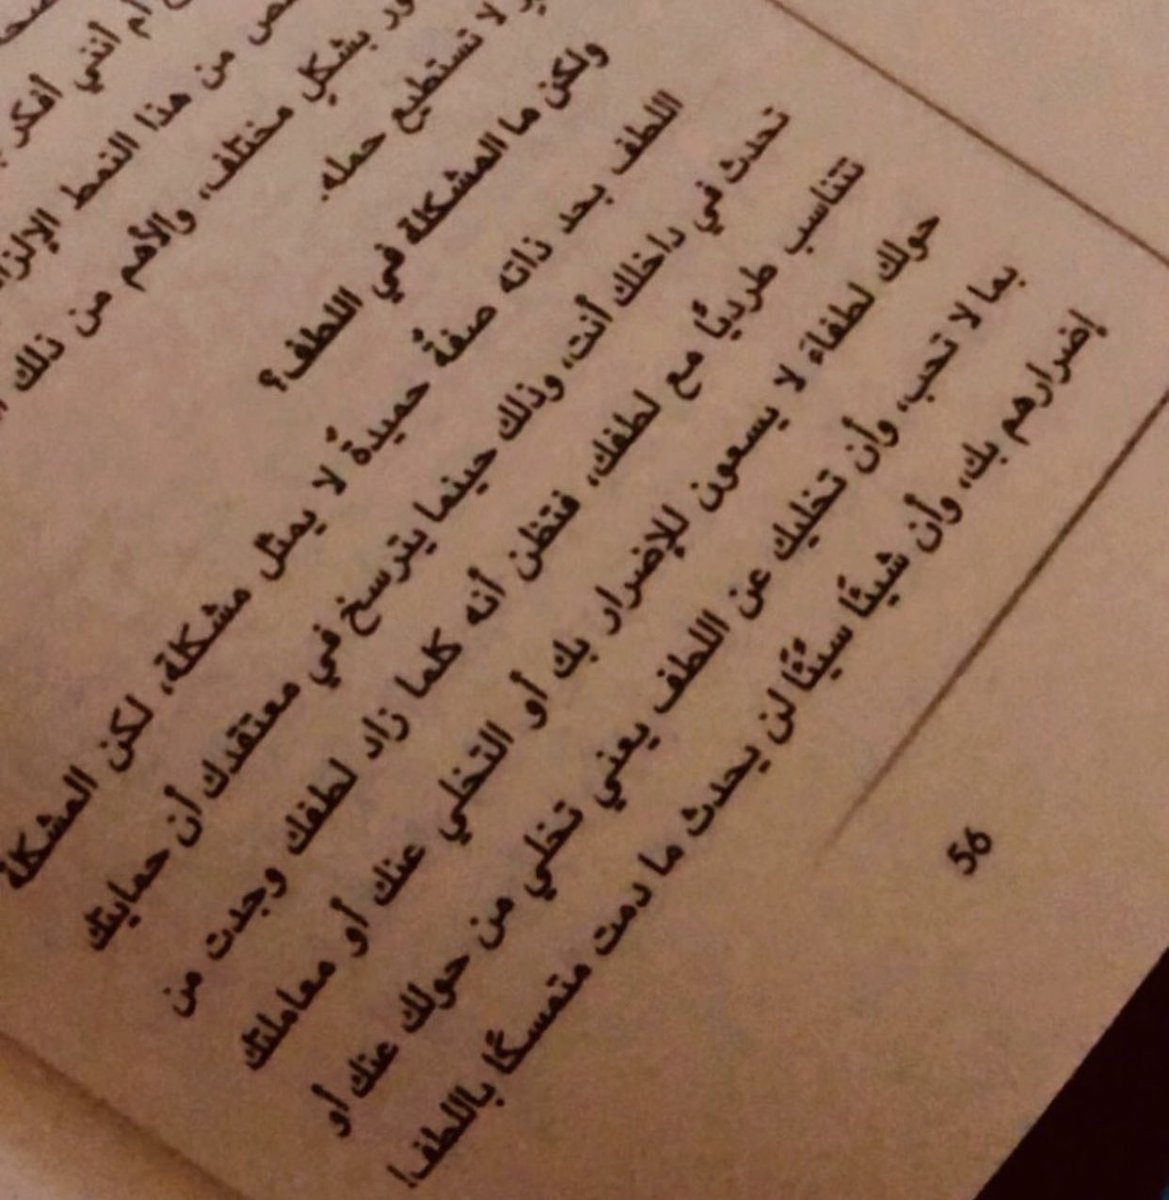 أم أنني أفكر
من هذا النمط
بشكلٍ مختلف، والأهم من ذلك
لا تستطيع حمله.
ولكن ما المشكلة في اللطف؟
اللطف بحد ذاته صفةٌ حميدةٌ لا يمثل مشكلة، لكن المشكلة
تحدث في داخلك أنت، وذلك حينما يترسخ في معتقدك أن حمايتك
تتناسب طرديًا مع لطفك، فتظن أنه كلما زاد لطفك وجدت من
حولك لطفاءَ لا يسعون للإضرار بك أو التخلي عنك أو معاملتك
بما لا تحب، وأن تخليك عن اللطف يعني تخلي من حولك عنك أو
إضرارهم بك، وأن شيئًا سيئًا لن يحدث ما دمت متمسكًا باللطف!
56